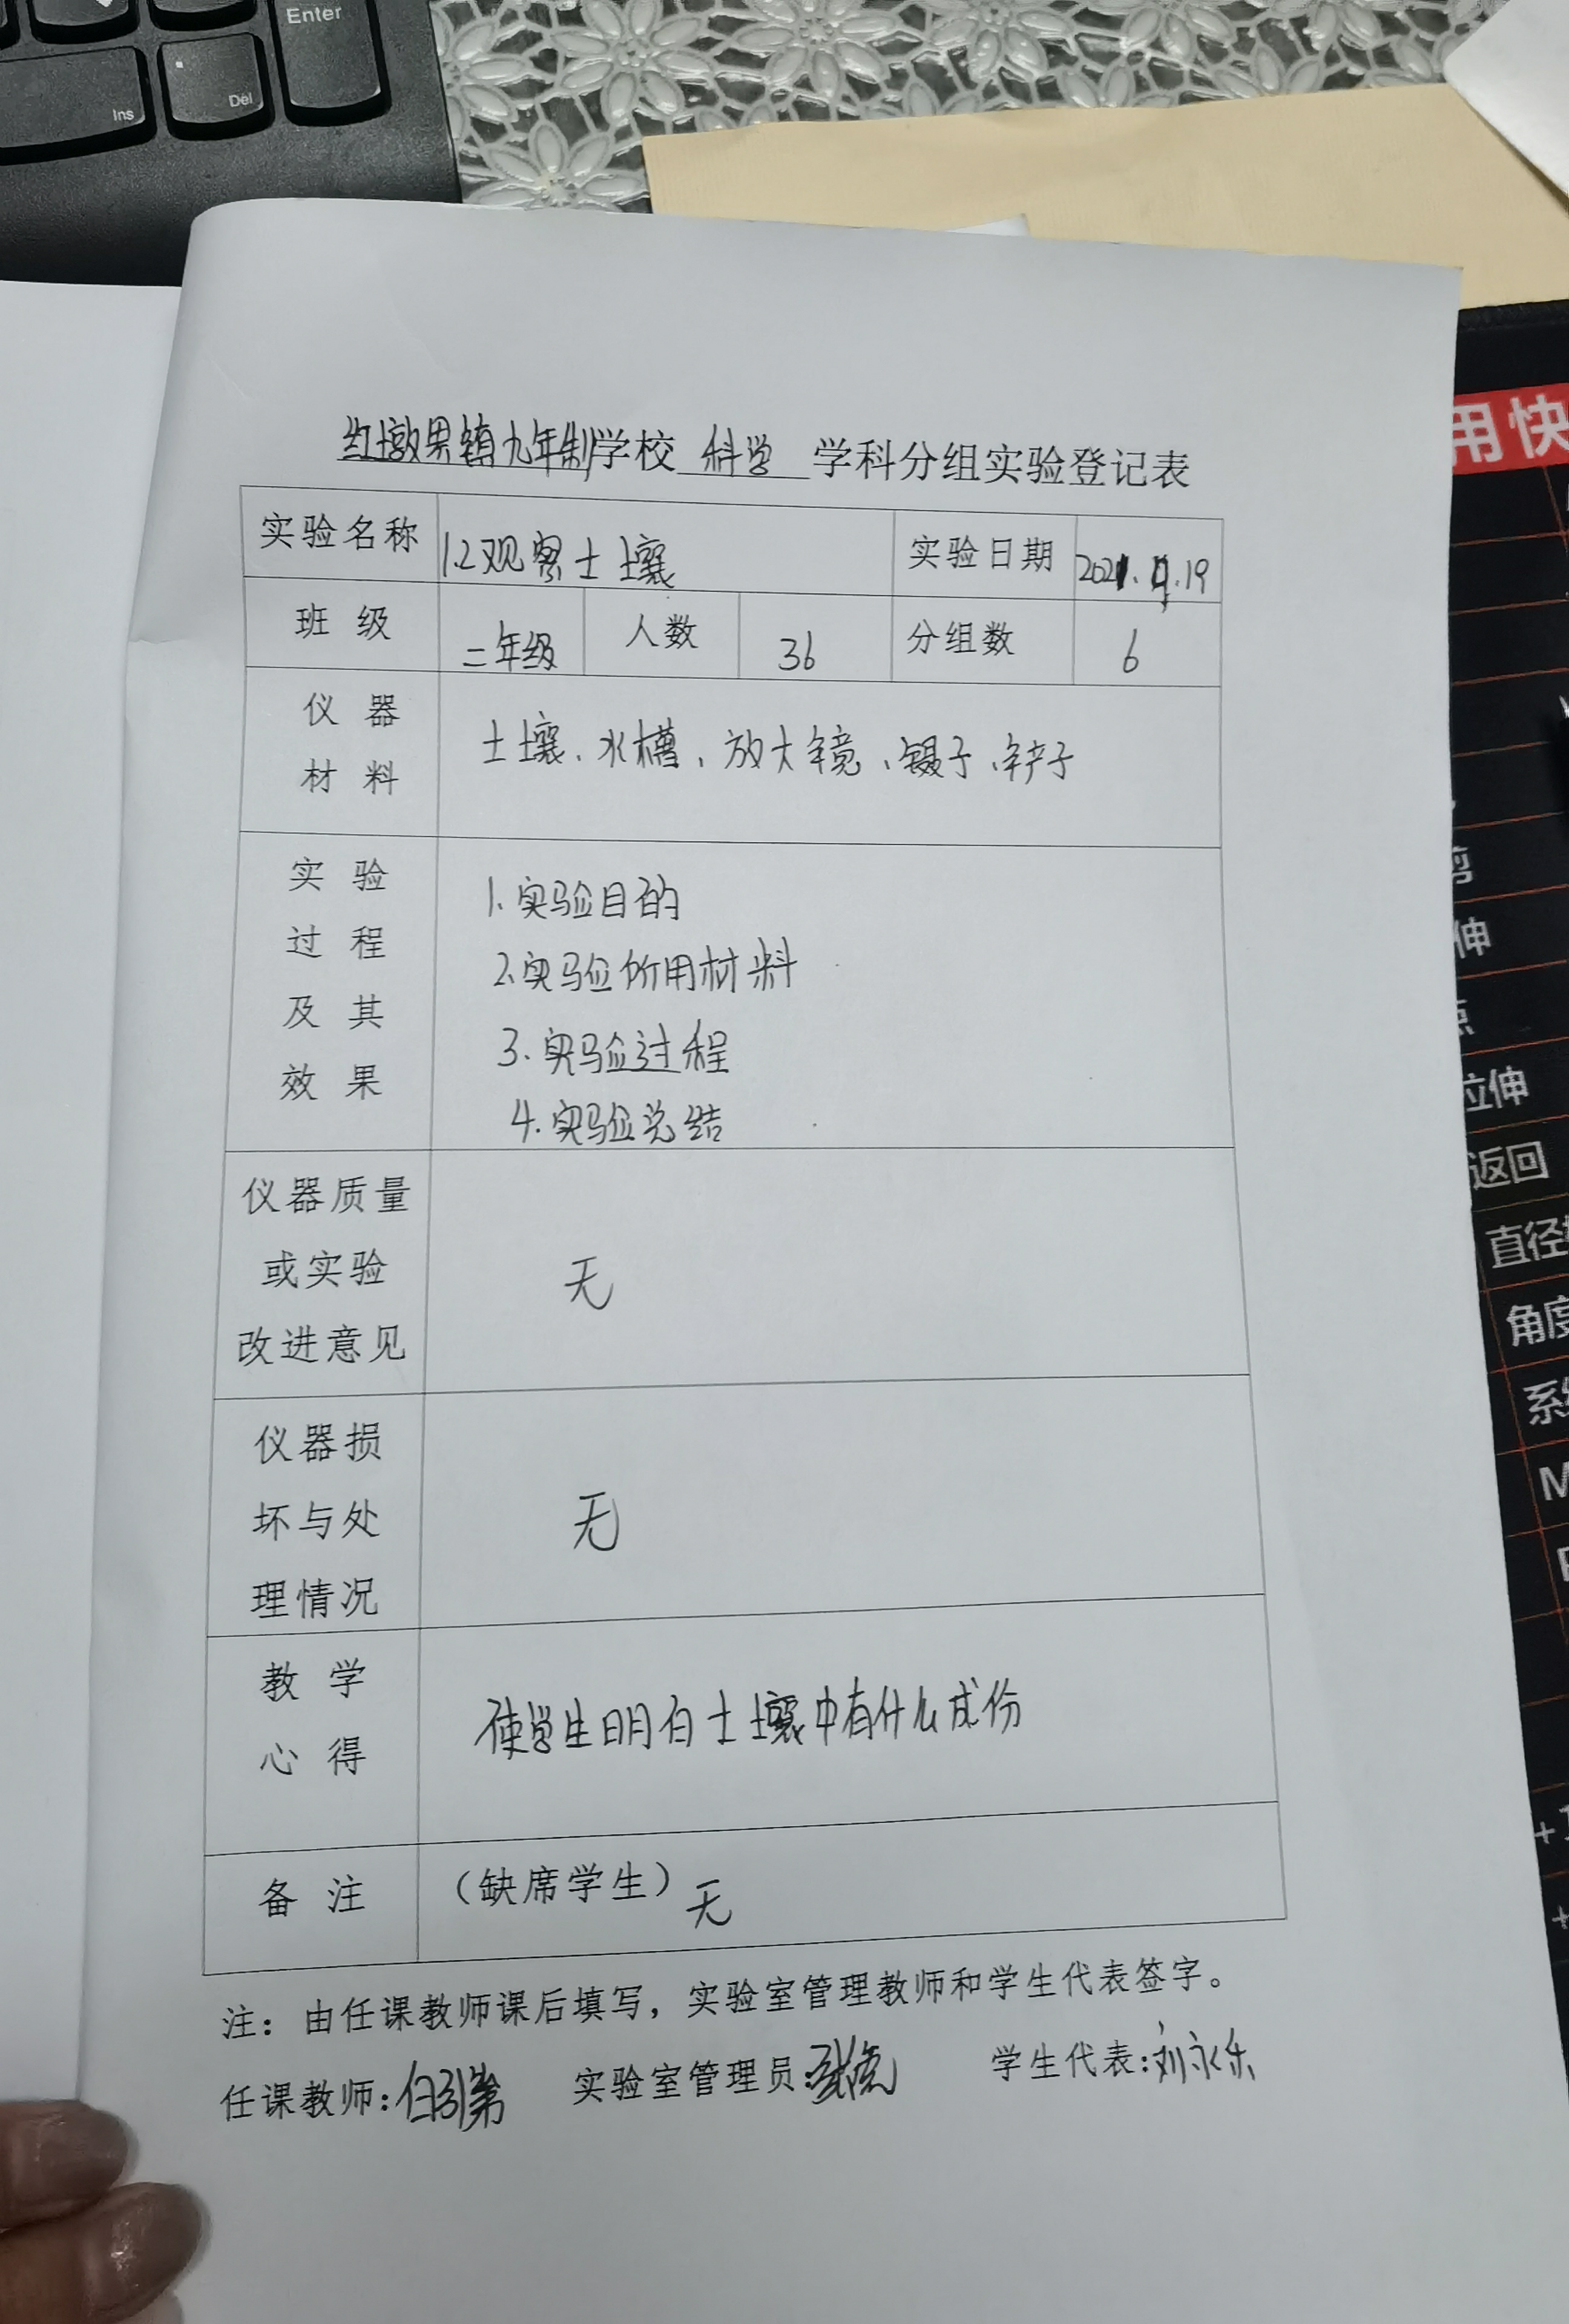 Enter
Ins
Del
用快
红墩界镇九年制学校 科学 学科分组实验登记表
实验名称 1.2观察土壤 实验日期 2021.9.19
班级 二年级 人数 36 分组数 6
仪器
材料
土壤、水槽、放大镜、镊子、铲子
实验
过程
及其
效果
1.实验目的
2.实验所用材料
3.实验过程
4.实验总结
仪器质量
或实验
改进意见
无
仪器损
坏与处
理情况
无
教学
心得
使学生明白土壤中有什么成份
备注 (缺席学生) 无
注：由任课教师课后填写，实验室管理教师和学生代表签字。
任课教师：白引弟 实验室管理员： 学生代表：刘永乐
伸
拉伸
返回
直径
角度